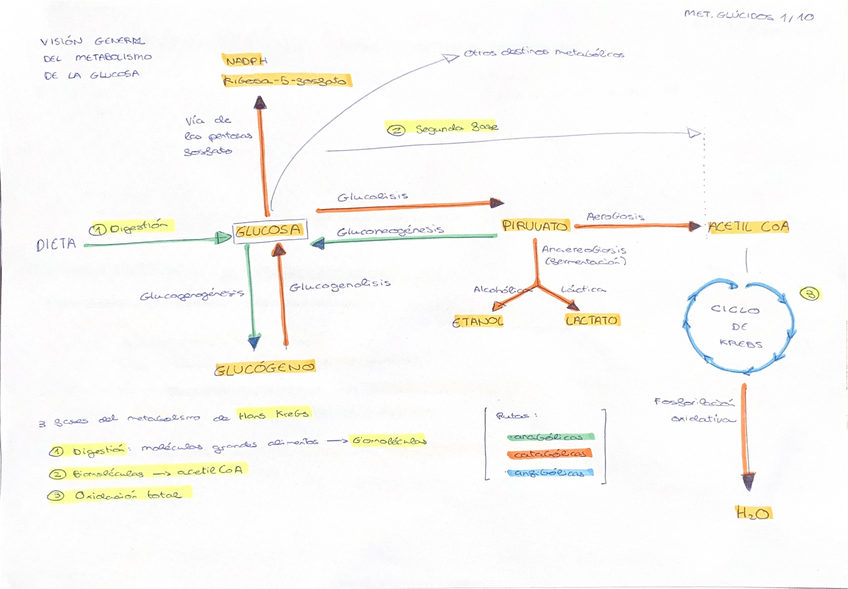 MET. GLÚCIDOS 1/10
VISIÓN GENERAL
DEL METABOLISMO
DE LA GLUCOSA
NADPH
Ribosa-5-fosfato
Otros destinos metabólicos
Vía de
las pentosas
fosfato
② Segunda fase
Glucolisis
① Digestión
DIETA
GLUCOSA
Gluconeogénesis
PIRUVATO
Aerobiosis
ACETIL CoA
Anaerobiosis
(fermentación)
Glucogenogénesis
Glucogenolisis
Alcohólica
Láctica
ETANOL
LACTATO
③
CICLO
DE
KREBS
GLUCÓGENO
Fosforilación
oxidativa
3 fases del metabolismo de Hans Krebs
① Digestión: moléculas grandes alimentos → biomoléculas
② Biomoléculas → acetil CoA
③ Oxidación total
Rutas:
anabólicas
catabólicas
anfibólicas
H₂O